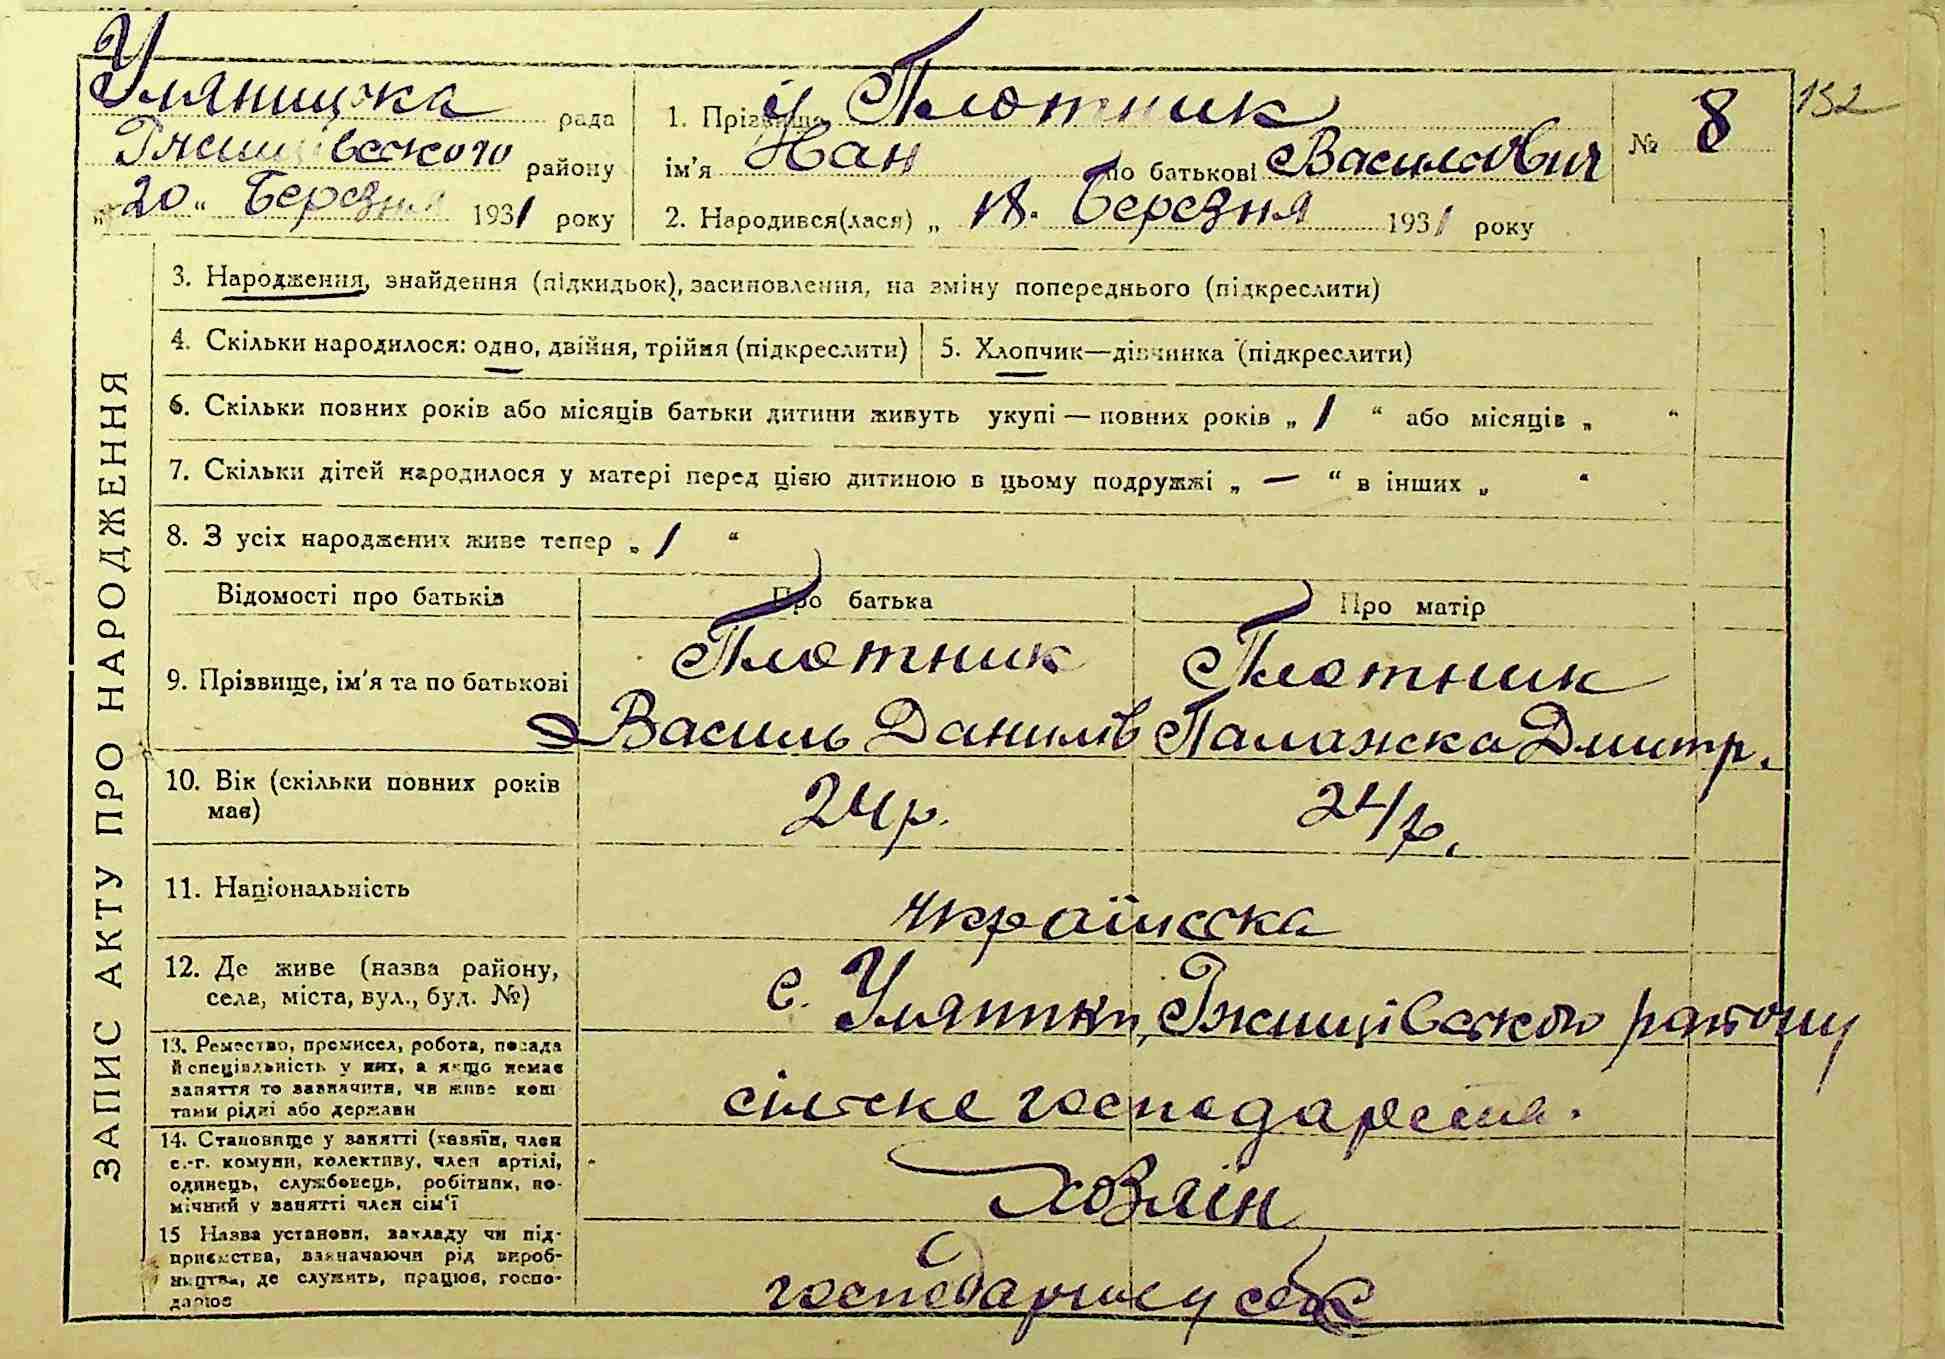 Уляницька рада
Ржищівського району
„20“ Березня 1931 року
1. Прізвище Плотник
ім'я Йван по батькові Василович
2. Народився(лася) „ 18. Березня 1931 року
№ 8
132
ЗАПИС АКТУ ПРО НАРОДЖЕННЯ
3. Народження, знайдення (підкидьок), засиновлення, на зміну попереднього (підкреслити)
4. Скільки народилося: одно, двійня, трійня (підкреслити)
5. Хлопчик—дівчинка (підкреслити)
6. Скільки повних років або місяців батьки дитини живуть укупі — повних років „ 1 “ або місяців „ “
7. Скільки дітей народилося у матері перед цією дитиною в цьому подружжі „ — “ в інших „ “
8. З усіх народжених живе тепер „ 1 “
Відомості про батьків
Про батька
Про матір
9. Прізвище, ім'я та по батькові
Плотник
Василь Данилів
Плотник
Палажка Дмитр.
10. Вік (скільки повних років
має)
24 р.
24 р.
11. Національність
українсска
12. Де живе (назва району,
села, міста, вул., буд. №)
с. Уляники, Ржищівського району
13. Ремество, промисел, робота, посада
й спеціяльність у них, а якщо немає
заняття то зазначити, чи живе кош
тами рідні або держави
сільске господарство.
14. Становище у занятті (хазяїн, член
с.-г. комуни, колективу, член артілі,
одинець, службовець, робітник, по-
мічний у занятті член сім'ї
хозяїн
15 Назва установи, закладу чи під-
приємства, зазначаючи рід вироб-
ництва, де служить, працює, госпо-
дарює
господарює у себе